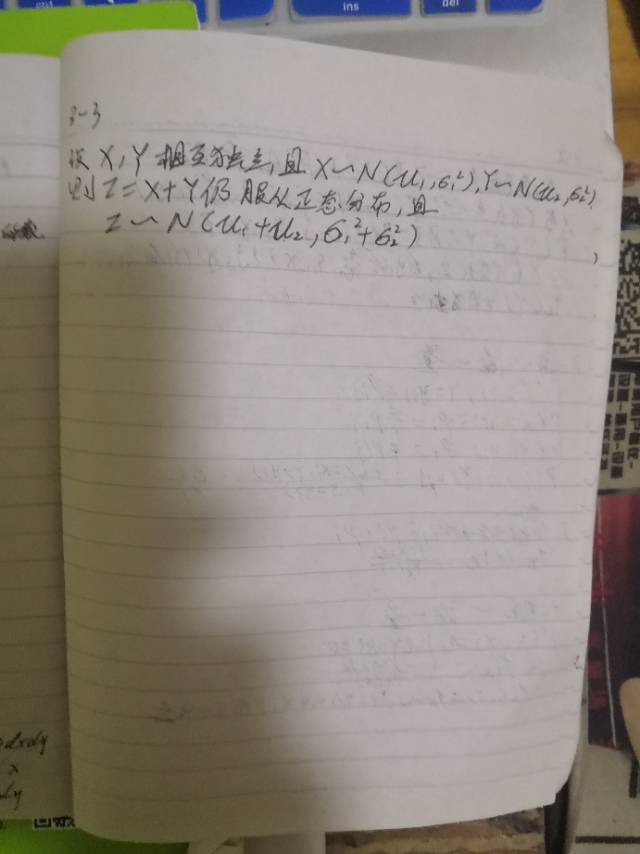 ins
del
3-3
设X,Y相互独立,且X~N(u₁,σ₁²),Y~N(u₂,σ₂²).
则Z=X+Y仍服从正态分布,且
Z~N(u₁+u₂,σ₁²+σ₂²)
dxdy
x
dy